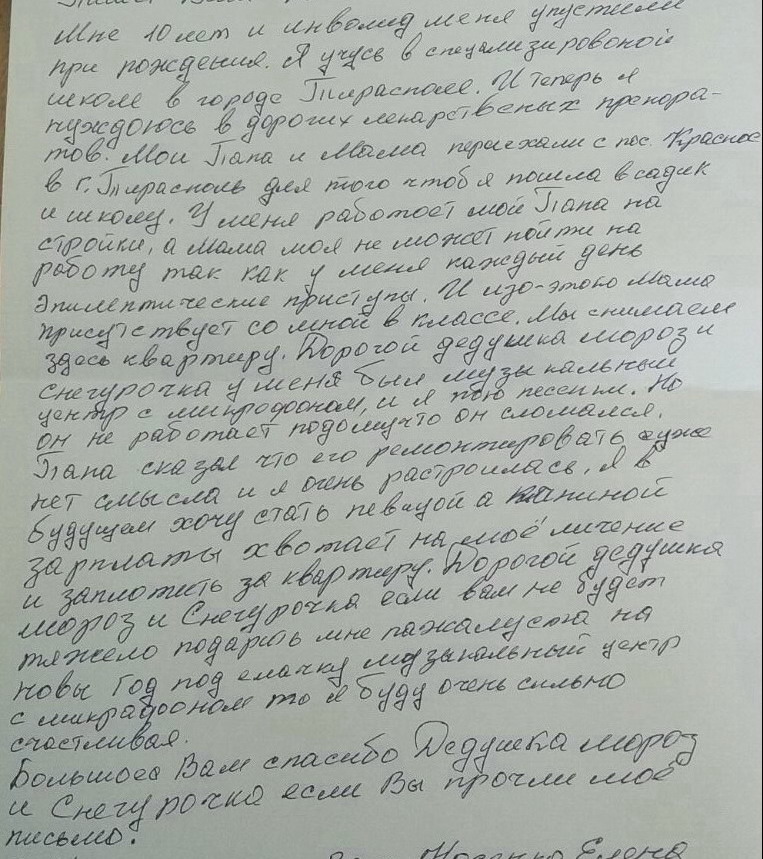 Мне 10 лет и инволид меня упустили
при рождения. Я учусь в специализировоной
школе в городе Тирасполе. И теперь я
нуждоюсь в дорогих лекарственых препора-
тов. Мои Папа и Мама переехали с пос. Красное
в г. Тирасполь для того чтоб я пошла в садик
и школу. У меня работоет мой Папа на
стройки, а мама моя не может пойти на
работу так как у меня каждый день
эпилептические приступы. И изо-этого мама
присутствует со мной в классе. Мы снимаем
здесь квартиру. Дорогой дедушка мороз и
снегурочка у меня был музыкальный
центр с микрофоном, и я пою песенки. Но
он не работает подомучто он сломался.
Папа сказал что его ремонтировать уже
нет смысла и я очень растроилась. Я в
будущем хочу стать певицой а папиной
зарплаты хвотает на моё личение
и заплотить за квартиру. Дорогой дедушка
мороз и Снегурочка если вам не будет
тяжело подарить мне пажалуста на
новы Год под елачку музыкальный центр
с микрафоном то я буду очень сильно
счастливая.
Большоеа Вам спасибо Дедушка мороз
и Снегурочка если Вы прочли моё
письмо.
Елена